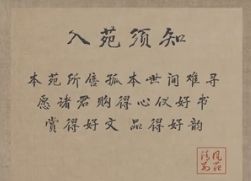 入苑须知
本苑所售孤本世间难寻
愿诸君购得心仪好书
赏得好文 品得好韵